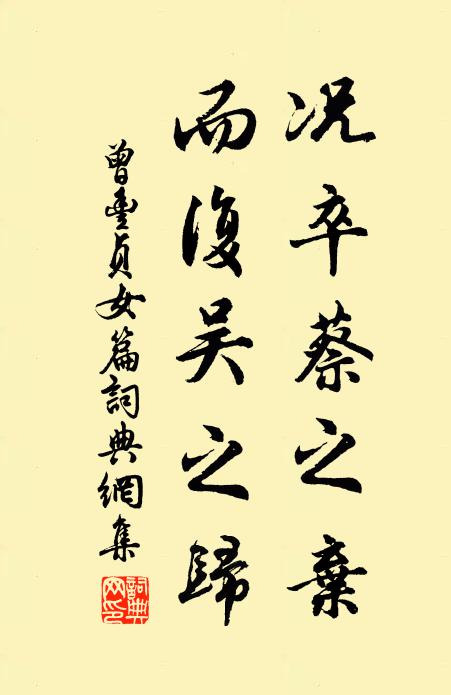 况卒蔡之棄
而復吴之歸
曾豐貞女篇詞典網集
詞典網印